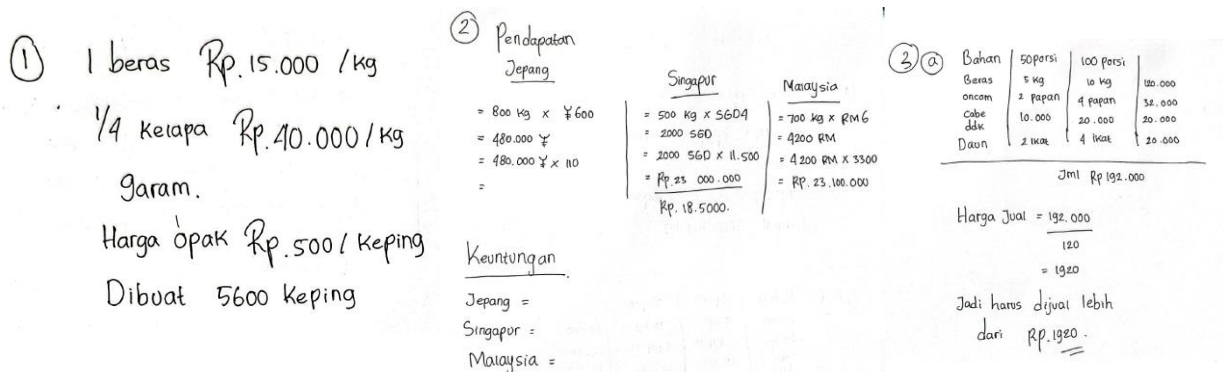 ① 1 beras Rp. 15.000 / kg
1/4 Kelapa Rp. 40.000 / kg
garam.
Harga opak Rp. 500 / Keping
Dibuat 5600 Keping
② Pendapatan
Jepang
= 800 kg x ¥600
= 480.000 ¥
= 480.000 ¥ x 110
=
Singapur
= 500 kg x SGD4
= 2000 SGD
= 2000 SGD x 11.500
= Rp. 23 000.000
Rp. 18.5000.
Malaysia
= 700 kg x RM6
= 4200 RM
= 4200 RM x 3300
= RP. 23.100.000
Keuntungan
Jepang =
Singapor =
Malaysia =
③ ⓐ Bahan 50porsi 100 Porsi
Beras 5 kg 10 kg 120.000
oncom 2 Papan 4 papan 32.000
Cabe ddk 10.000 20.000 20.000
Daun 2 Ikat 4 Ikat 20.000
Jml Rp 192.000
Harga Jual = 192.000
120
= 1920
Jadi harus dijual lebih
dari Rp. 1920.